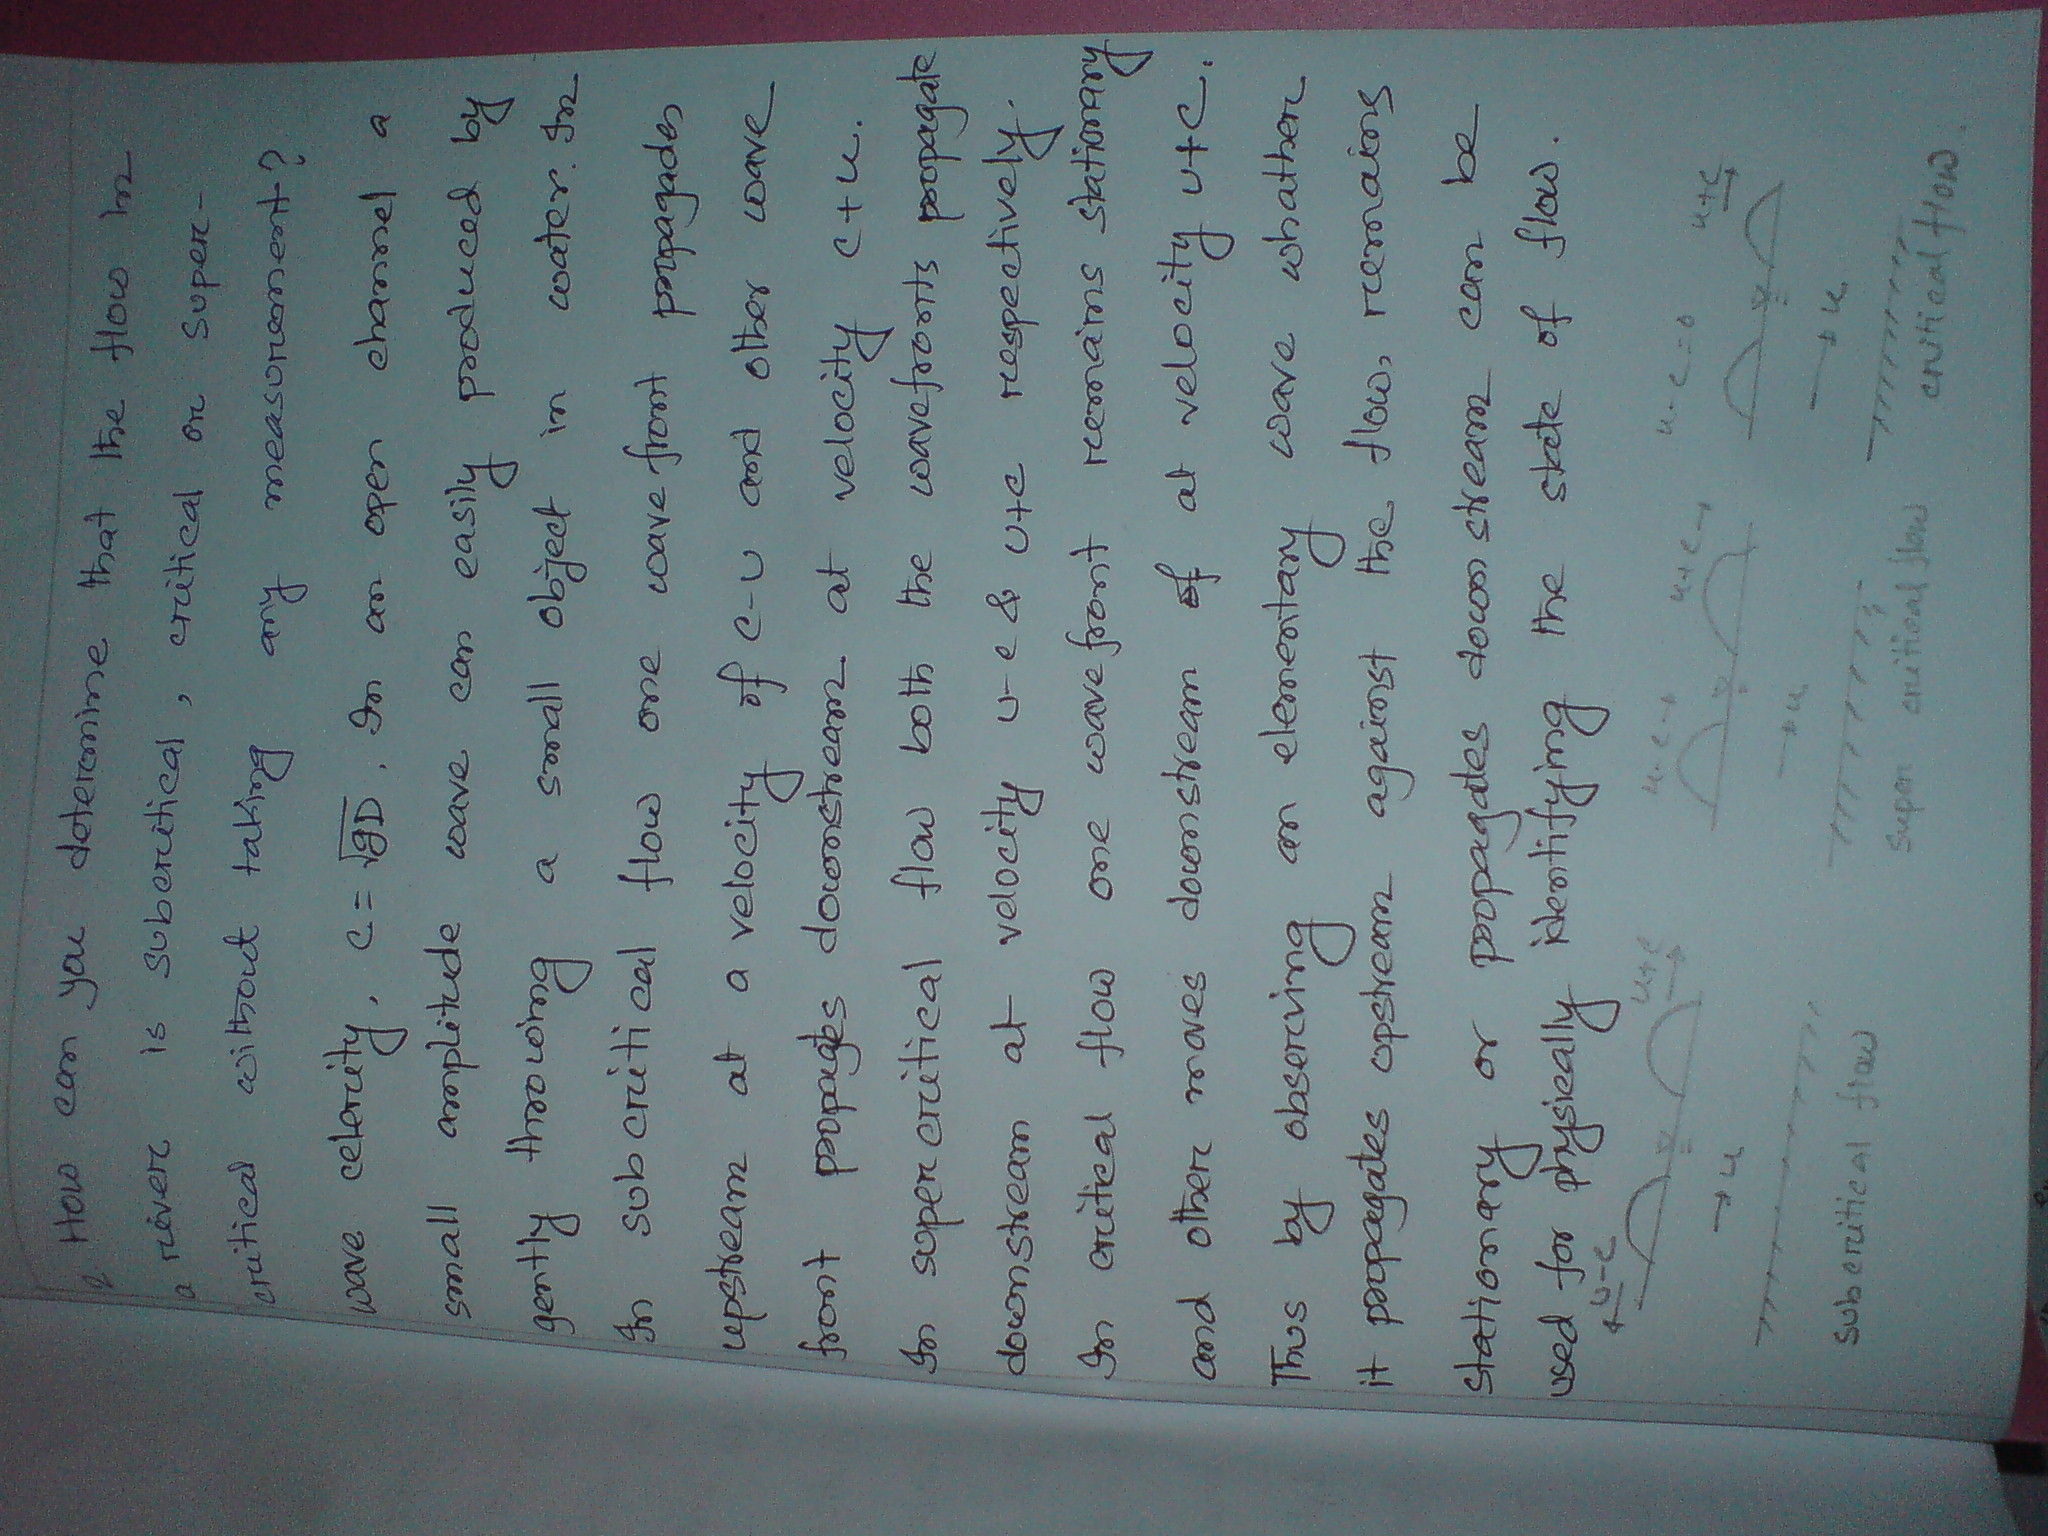 How can you determine that the flow in
a river is subcritical, critical or super-
critical without taking any measurement?
wave celerity, c = √gD. In an open channel a
small amplitude wave can easily produced by
gently throwing a small object in water. In
In subcritical flow one wave front propagades
upstream at a velocity of c-u and other wave
front propagates downstream at velocity c+u.
In supercritical flow both the wavefronts propagate
downstream at velocity u-c & u+c respectively.
In critical flow one wavefront remains stationary
and other moves downstream of at velocity u+c.
Thus by observing an elementary wave whather
it propagates upstream against the flow, remains
stationary or propagates downstream can be
used for physically identifying the state of flow.
u-c u+c u-c u+c u-c=0 u+c
u u u
subcritical flow super critical flow critical flow.